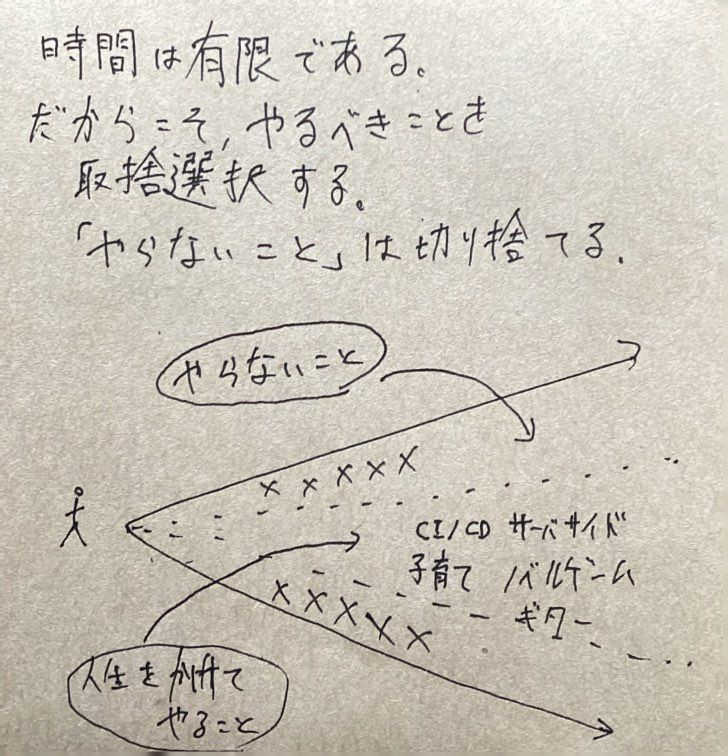 時間は有限である。
だからこそ,やるべきことを
取捨選択する。
「やらないこと」は切り捨てる.
やらないこと
× × × × ×
CI/CD サーバサイド
子育て ノベルゲーム
ギター
× × × × ×
人生をかけて
やること